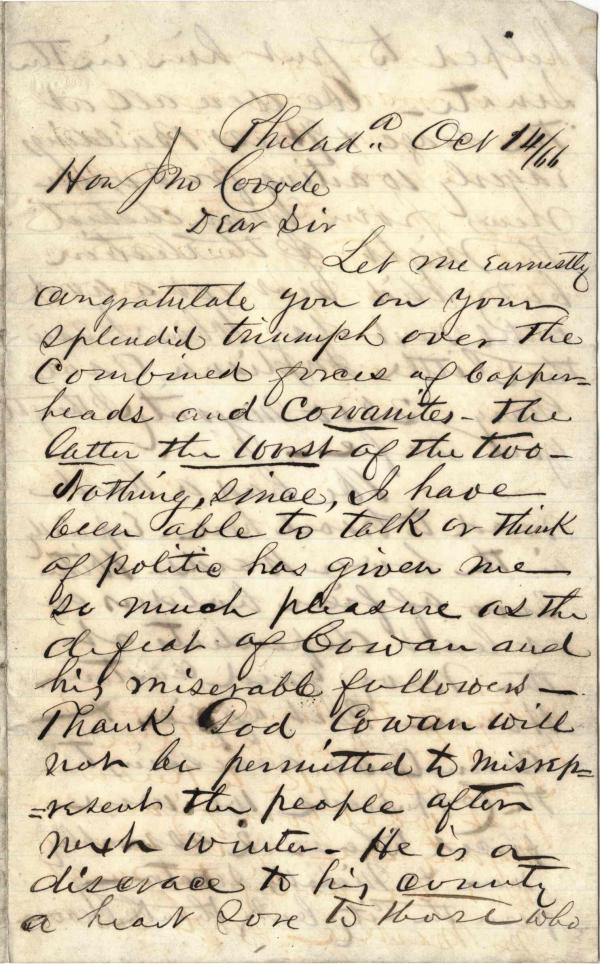 Philad.a Oct 14/66
Hon Jno Covode
Dear Sir
Let me earnestly
congratulate you on your
splendid triumph over the
Combined forces of Copper=
heads and Cowanites - the
latter the worst of the two -
Nothing, since, I have
been able to talk or think
of politic has given me
so much pleasure as the
defeat of Cowan and
his miserable followers -
Thank God Cowan will
not be permitted to misrep=
=resent the people after
next winter - He is a
discrace to his county
a heart sore to those who